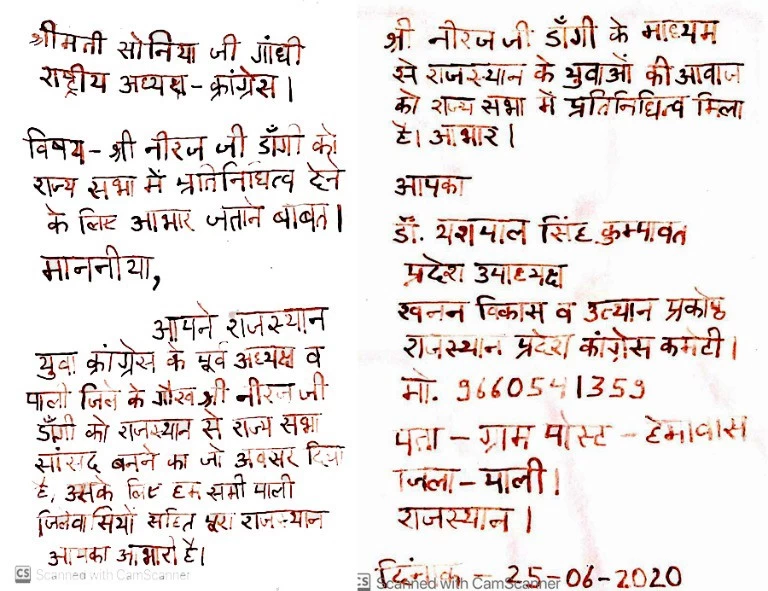 श्रीमती सोनिया जी गांधी
राष्ट्रीय अध्यक्ष - कांग्रेस।
विषय - श्री नीरज जी डाँगी को
राज्य सभा में प्रतिनिधित्व देने
के लिए आभार जताने बाबत।
माननीया,
आपने राजस्थान
युवा कांग्रेस के पूर्व अध्यक्ष व
पाली जिले के गौरव श्री नीरज जी
डाँगी को राजस्थान से राज्य सभा
सांसद बनने का जो अवसर दिया
है, उसके लिए हम सभी पाली
जिलेवासियों सहित पूरा राजस्थान
आपका आभारी है।
CS Scanned with CamScanner
श्री नीरज जी डाँगी के माध्यम
से राजस्थान के युवाओं की आवाज
को राज्य सभा में प्रतिनिधित्व मिला
है। आभार।
आपका
डॉ. यशपाल सिंह कुम्पावत
प्रदेश उपाध्यक्ष
खनन विकास व उत्थान प्रकोष्ठ
राजस्थान प्रदेश कांग्रेस कमेटी।
मो. 9660541359
पता - ग्राम पोस्ट - हेमावास
जिला - पाली।
राजस्थान।
दिनांक - 25-06-2020
CS Scanned with CamScanner